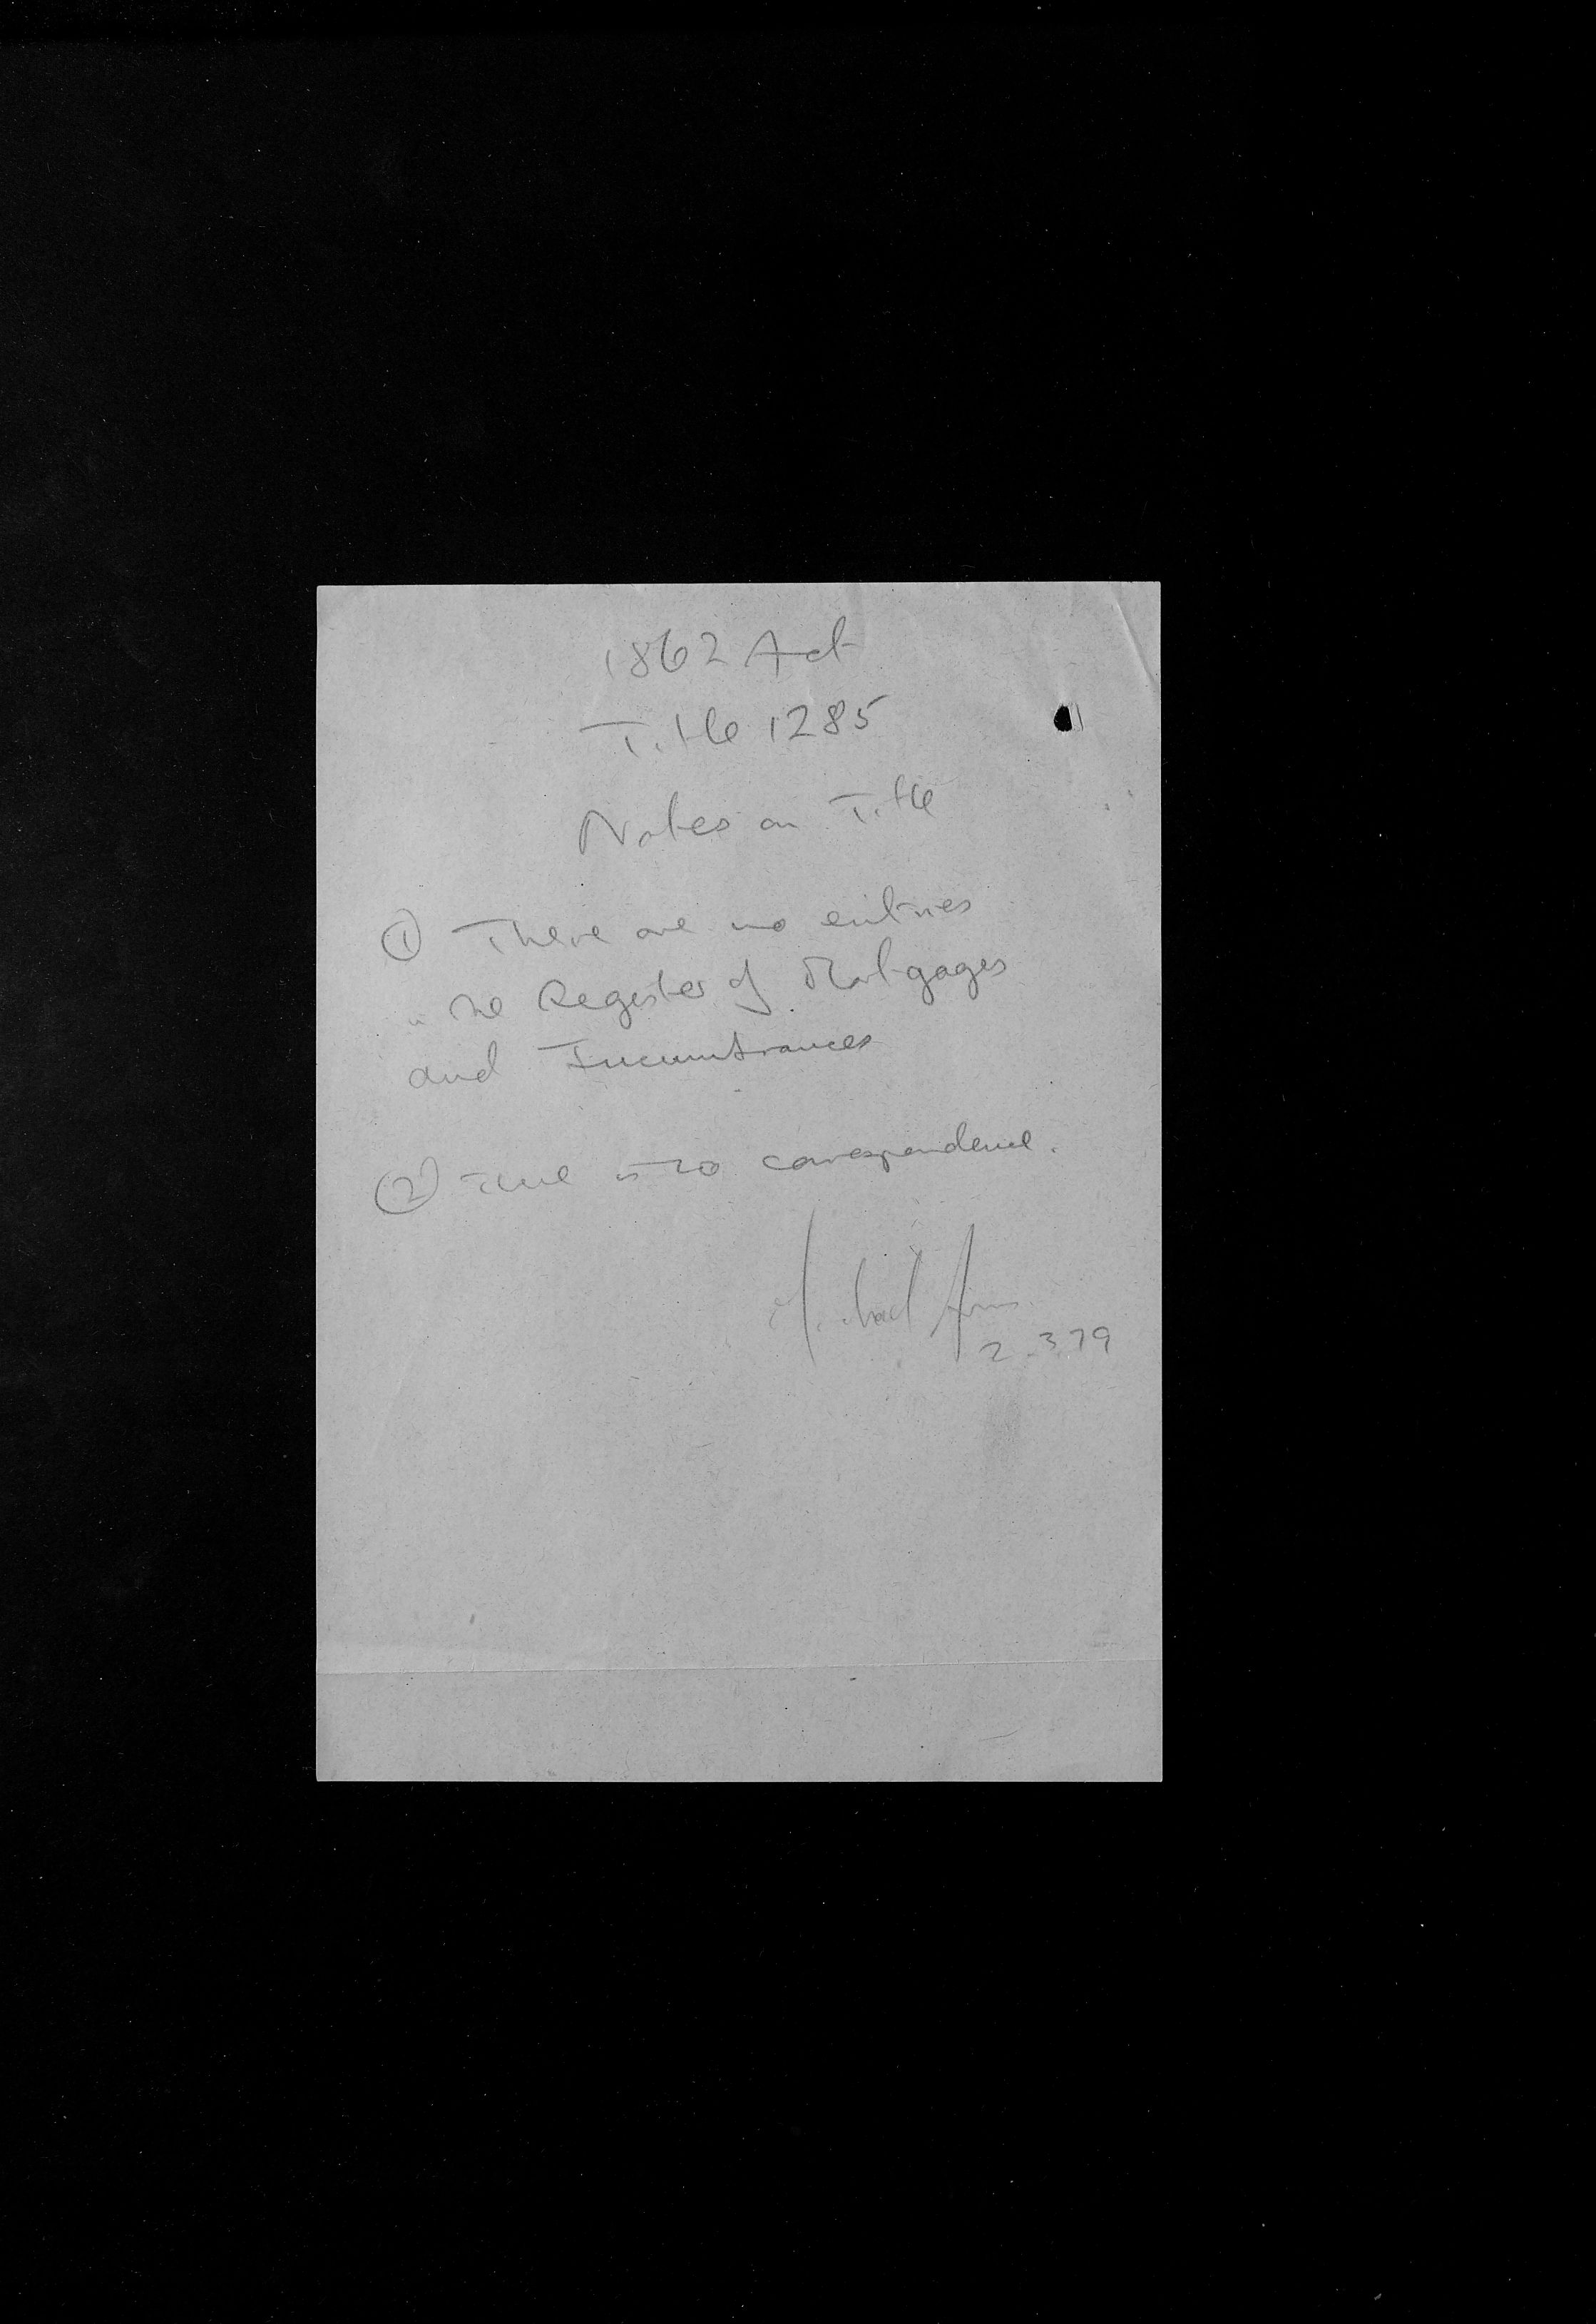 1862 Act
Title 1285
Notes on Title
① There are no entries
in the Register of Mortgages
and Incumbrances
② There is no correspondence.
Michael
2.3.79